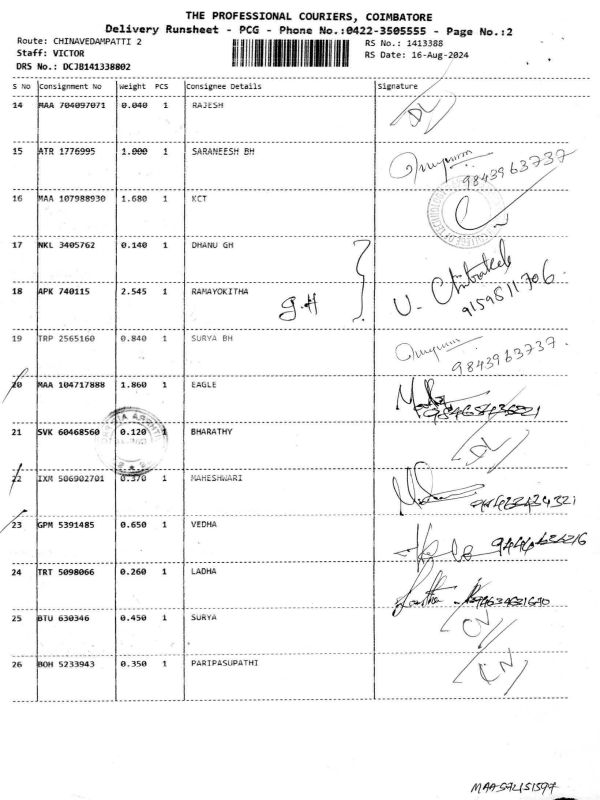 THE PROFESSIONAL COURIERS, COIMBATORE
Delivery Runsheet - PCG - Phone No.:0422-3505555 - Page No.:2
Route: CHINAVEDAMPATTI 2 RS No.: 1413388
Staff: VICTOR RS Date: 16-Aug-2024
DRS No.: DCJB141338802
S No Consignment No Weight PCS Consignee Details Signature
14 MAA 704097071 0.040 1 RAJESH DL
15 ATR 1776995 1.000 1 SARANEESH BH 9843963737
16 MAA 107988930 1.680 1 KCT
17 NKL 3405762 0.140 1 DHANU GH
18 APK 740115 2.545 1 RAMAYOKITHA g.H U- 9159811706.
19 TRP 2565160 0.840 1 SURYA BH 9843963737.
20 MAA 104717888 1.860 1 EAGLE
21 SVK 60468560 0.120 1 BHARATHY DL
22 IXM 506902701 0.370 1 MAHESHWARI
23 GPM 5391485 0.650 1 VEDHA
24 TRT 5098066 0.260 1 LADHA
25 BTU 630346 0.450 1 SURYA CN
26 BOH 5233943 0.350 1 PARIPASUPATHI CN